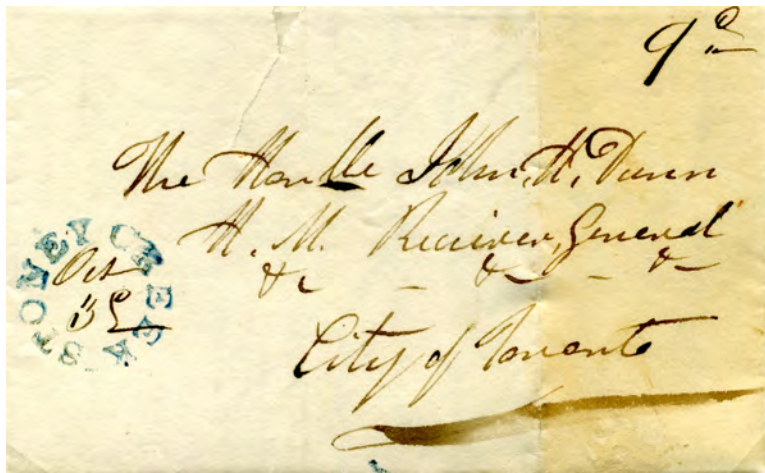 9 D
The Honble John, H, Dunn
H. M. Receiver General
& - & - &
City of Toronto
STONEY CREEK
Oct